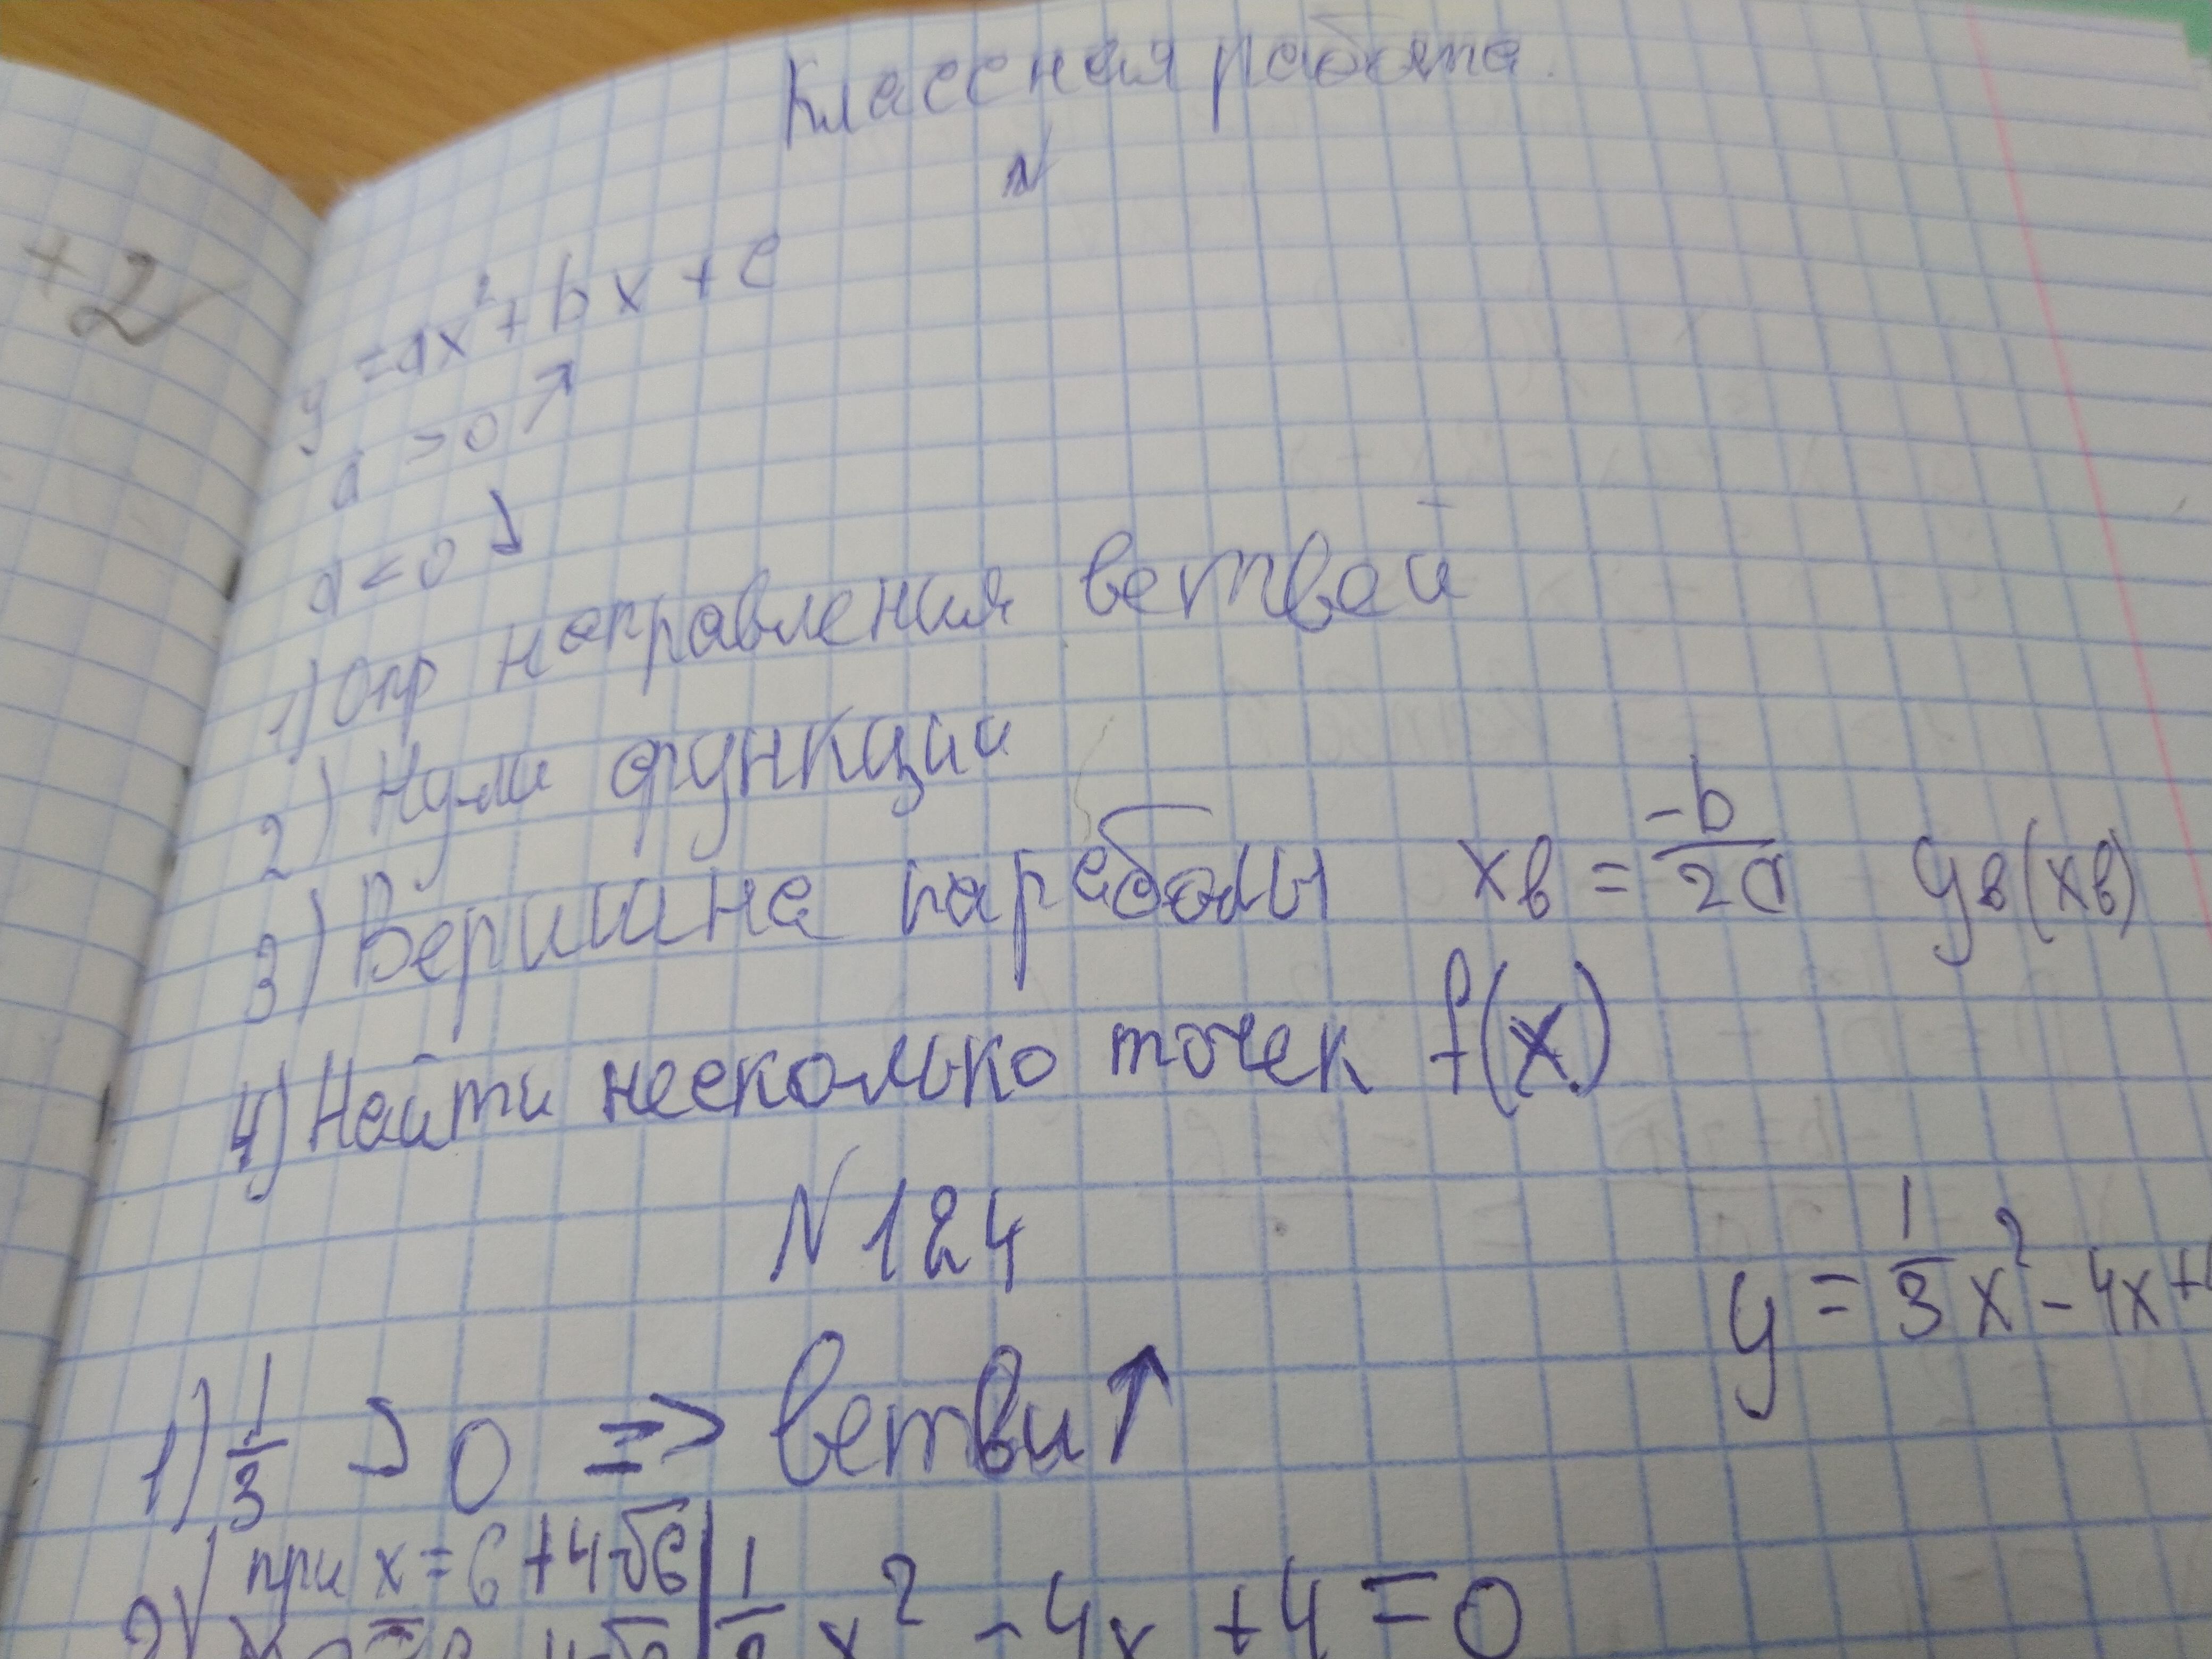 Классная работа.
N
+2
y = ax² + bx + c
a > 0 ↗
a < 0 ↘
1) Опр направления ветвей
2) Нули функции
3) Вершина параболы xв = -b/2a yв(xв)
4) Найти несколько точек f(x)
N 124
y = 1/3 x² - 4x +
1) 1/3 > 0 => ветви ↑
при x = 6 + 4√6
2) x² - 4x + 4 = 0